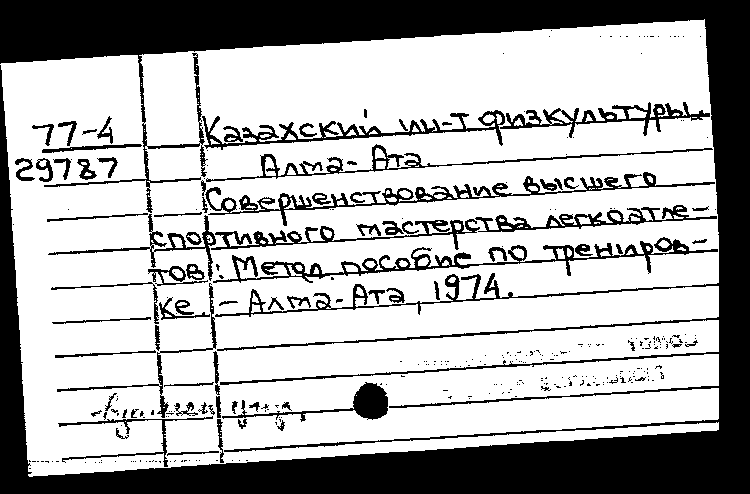 77-4
29787
Казахский ин-т физкультуры.
Алма-Ата.
Совершенствование высшего
спортивного мастерства легкоатле-
тов: Метод. пособие по трениров-
ке. – Алма-Ата, 1974.